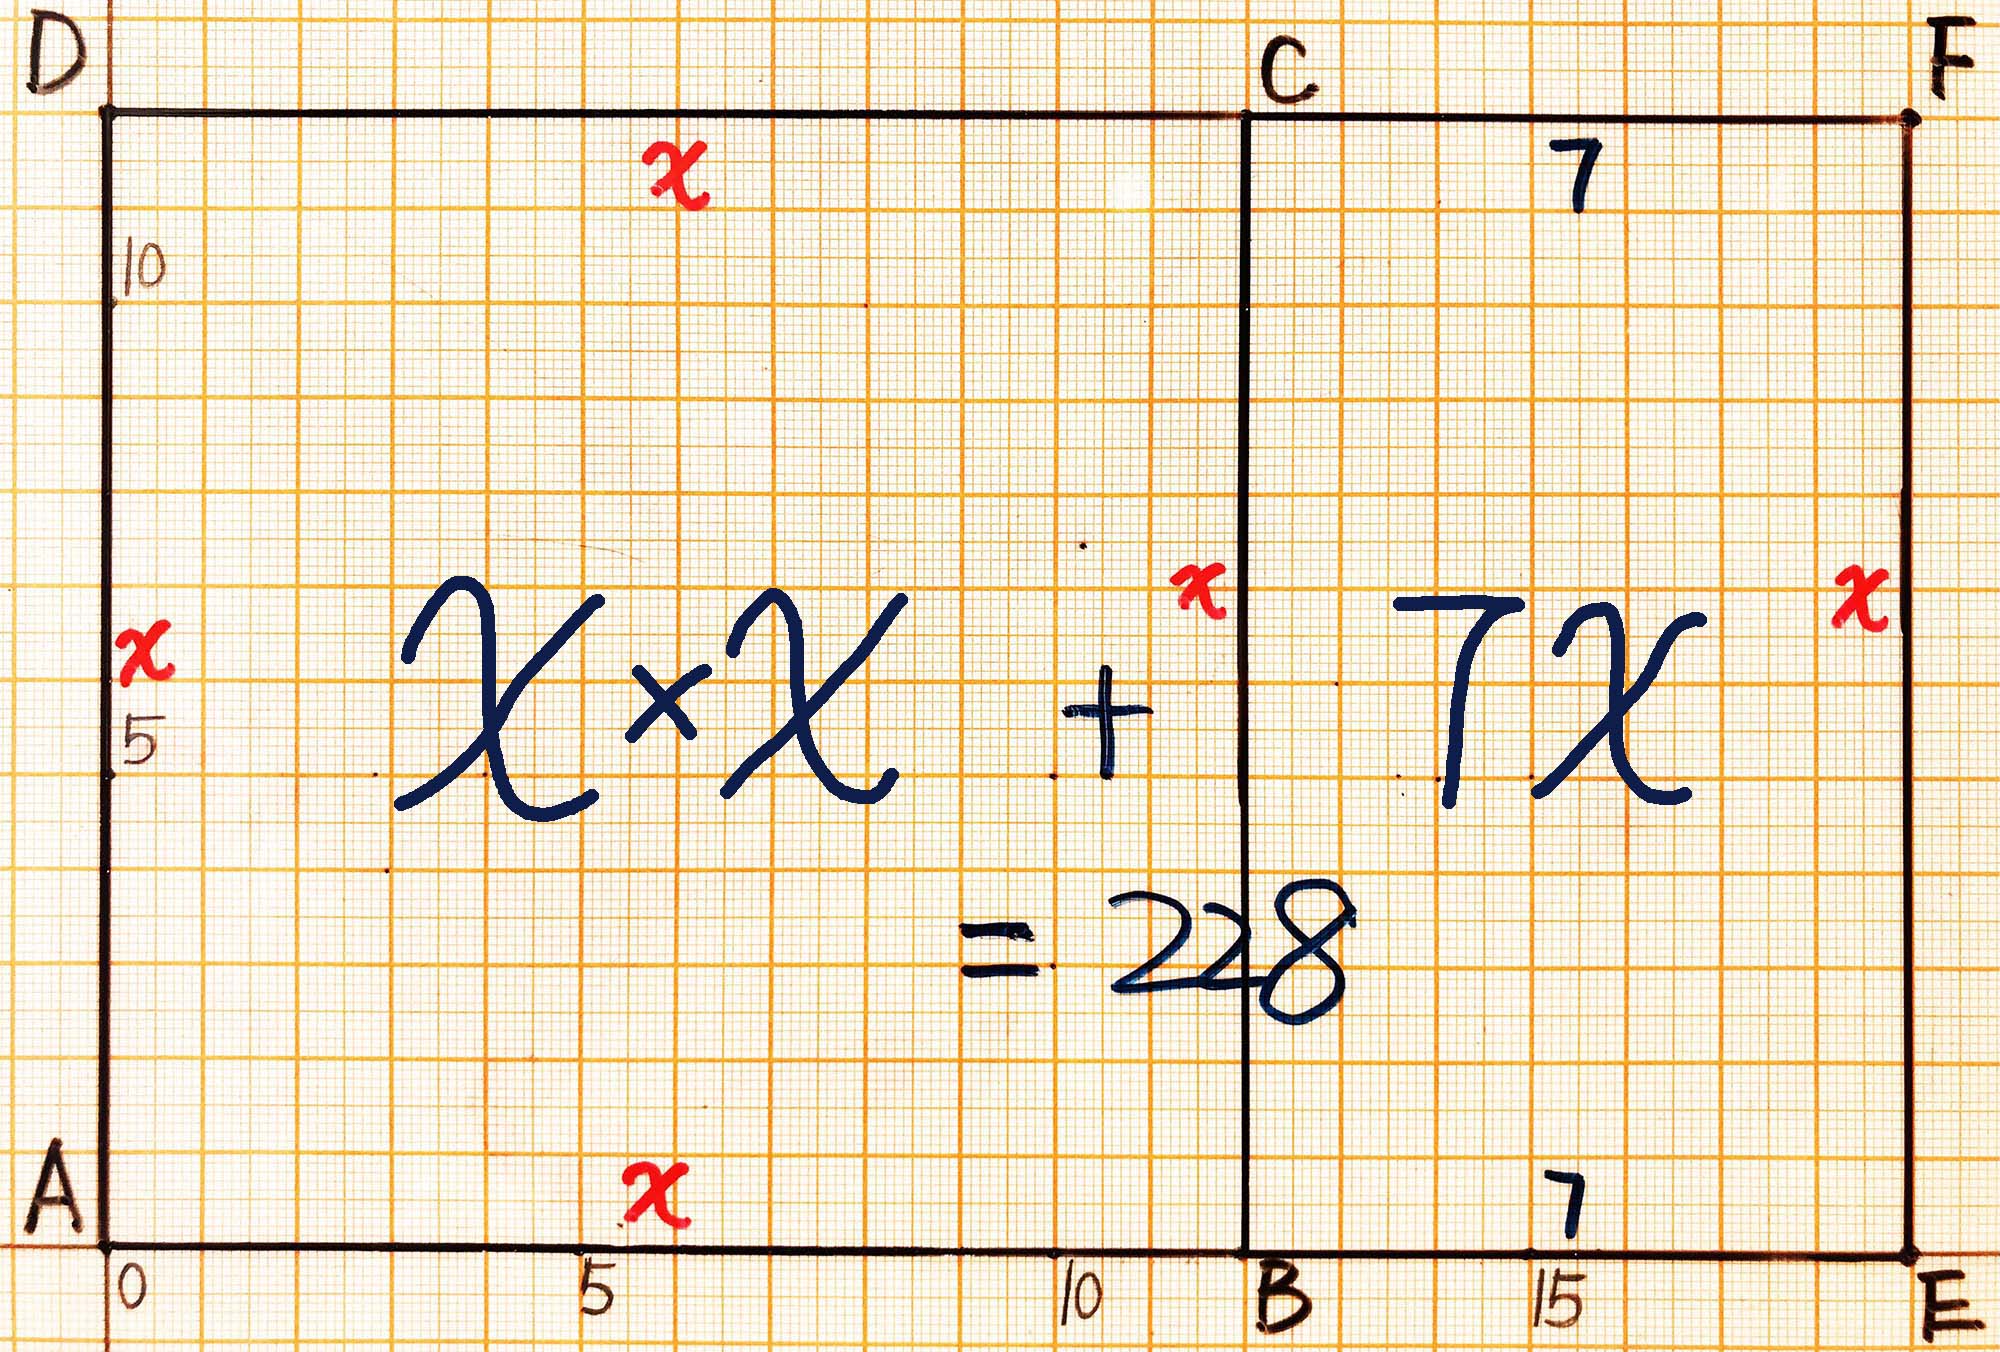 D C F
x 7
10
x x x
5
x × x + 7x
= 228
A x 7
0 5 10 B 15 E